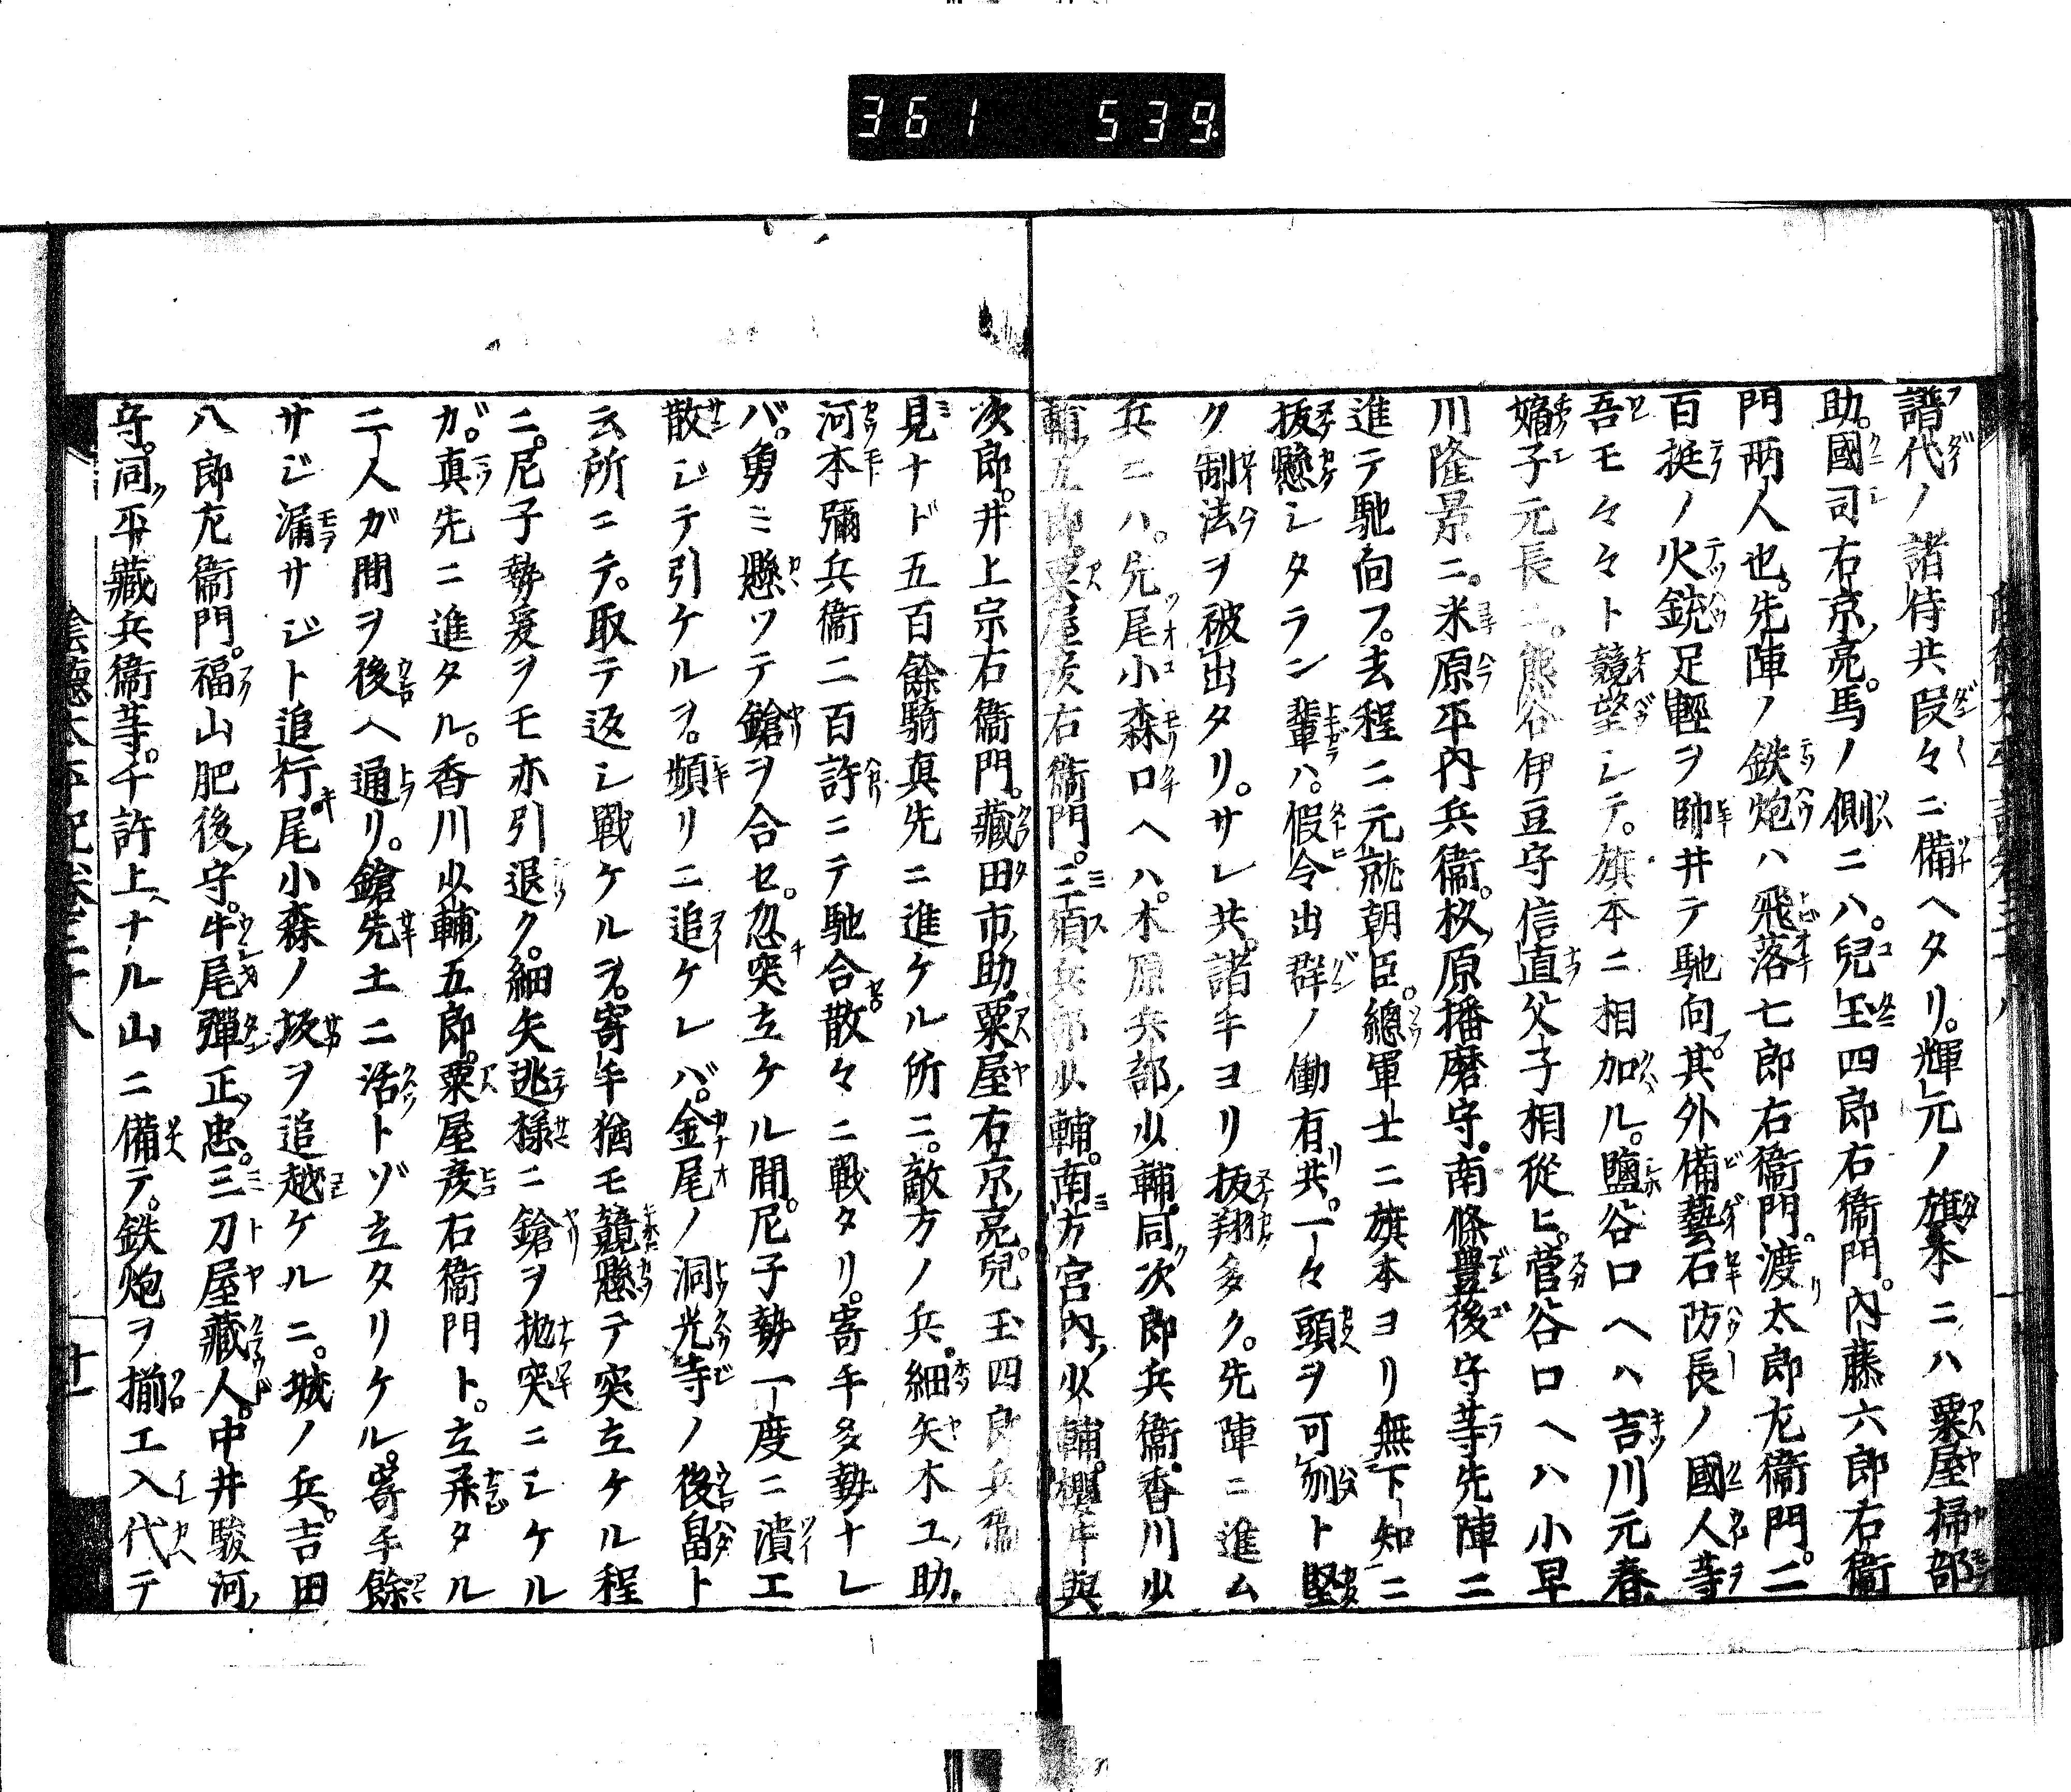 361 539
譜代ノ諸侍共段々ニ備ヘタリ。輝元ノ旗本ニハ粟屋掃部
助。國司右京亮。馬ノ側ニハ。兒玉四郎右衞門。内藤六郎右衞
門両人也。先陣ノ鉄炮ハ飛落七郎右衞門。渡太郎左衞門。二
百挺ノ火銃足輕ヲ帥井テ馳向。其外備藝石防長ノ國人等
吾モ々々ト競望シテ。旗本ニ相加ル。鹽谷口ヘハ吉川元春。
嫡子元長ニ。熊谷伊豆守信直父子相從ヒ。菅谷口ヘハ小早
川隆景ニ。米原平内兵衞。杦原播磨守。南條豊後守等先陣ニ
進テ馳向フ。去程ニ元就朝臣。總軍士ニ旗本ヨリ無下知ニ
抜懸シタラン輩ハ。假令出群ノ働有共。一々頭ヲ可刎ト堅
ク制法ヲ被出タリ。サレ共。諸手ヨリ抜翔多ク。先陣ニ進ム
兵ニハ。先尾小森口ヘハ。木原兵部少輔。同次郎兵衞。香川少
輔五郎。粟屋彦右衞門。三須兵部少輔。南方宮内少輔。櫻井與
次郎。井上宗右衞門。藏田市助。粟屋右京亮。兒玉四郎兵衞
見ナド五百餘騎真先ニ進ケル所ニ。敵方ノ兵。細矢木工助。
河本彌兵衞二百許ニテ馳合散々ニ戰タリ。寄手多勢ナレ
バ。勇ミ懸ツテ鎗ヲ合セ。忽突立ケル間。尼子勢一度ニ潰エ
散ジテ引ケルヲ。頻リニ追ケレバ。金尾ノ洞光寺ノ後畠ト
云所ニテ。取テ返シ戰ケルヲ。寄手猶モ競懸テ突立ケル程
ニ。尼子勢爰ヲモ亦引退ク。細矢逃樣ニ鎗ヲ抛突ニシケル
ガ。真先ニ進タル。香川少輔五郎。粟屋彦右衞門ト。立系タル
二人ガ間ヲ後ヘ通リ。鎗先土ニ活トゾ立タリケル。寄手餘
サジ漏サジト追行尾小森ノ坂ヲ追越ケルニ。城ノ兵。吉田
八郎左衞門。福山肥後守。牛尾彈正忠。三刀屋藏人。中井駿河
守。同平藏兵衞等。千許上ナル山ニ備テ。鉄炮ヲ揃エ入代テ
陰德太平記卷三十八 廿一